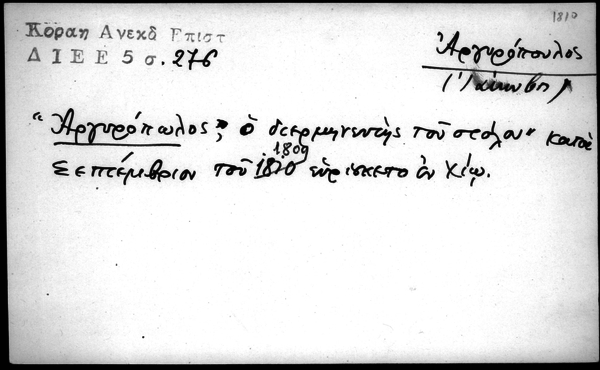 1810
Κοραη Ανεκδ Επιστ
Δ Ι Ε Ε 5 σ. 276
Ἀργυρόπουλος
(Ἰάκωβος)
"Ἀργυρόπωλος, ὁ διερμηνευτὴς τοῦ στόλου" κατὰ
1809
Σεπτέμβριον τοῦ 1810 εὑρίσκετο ἐν Χίῳ.